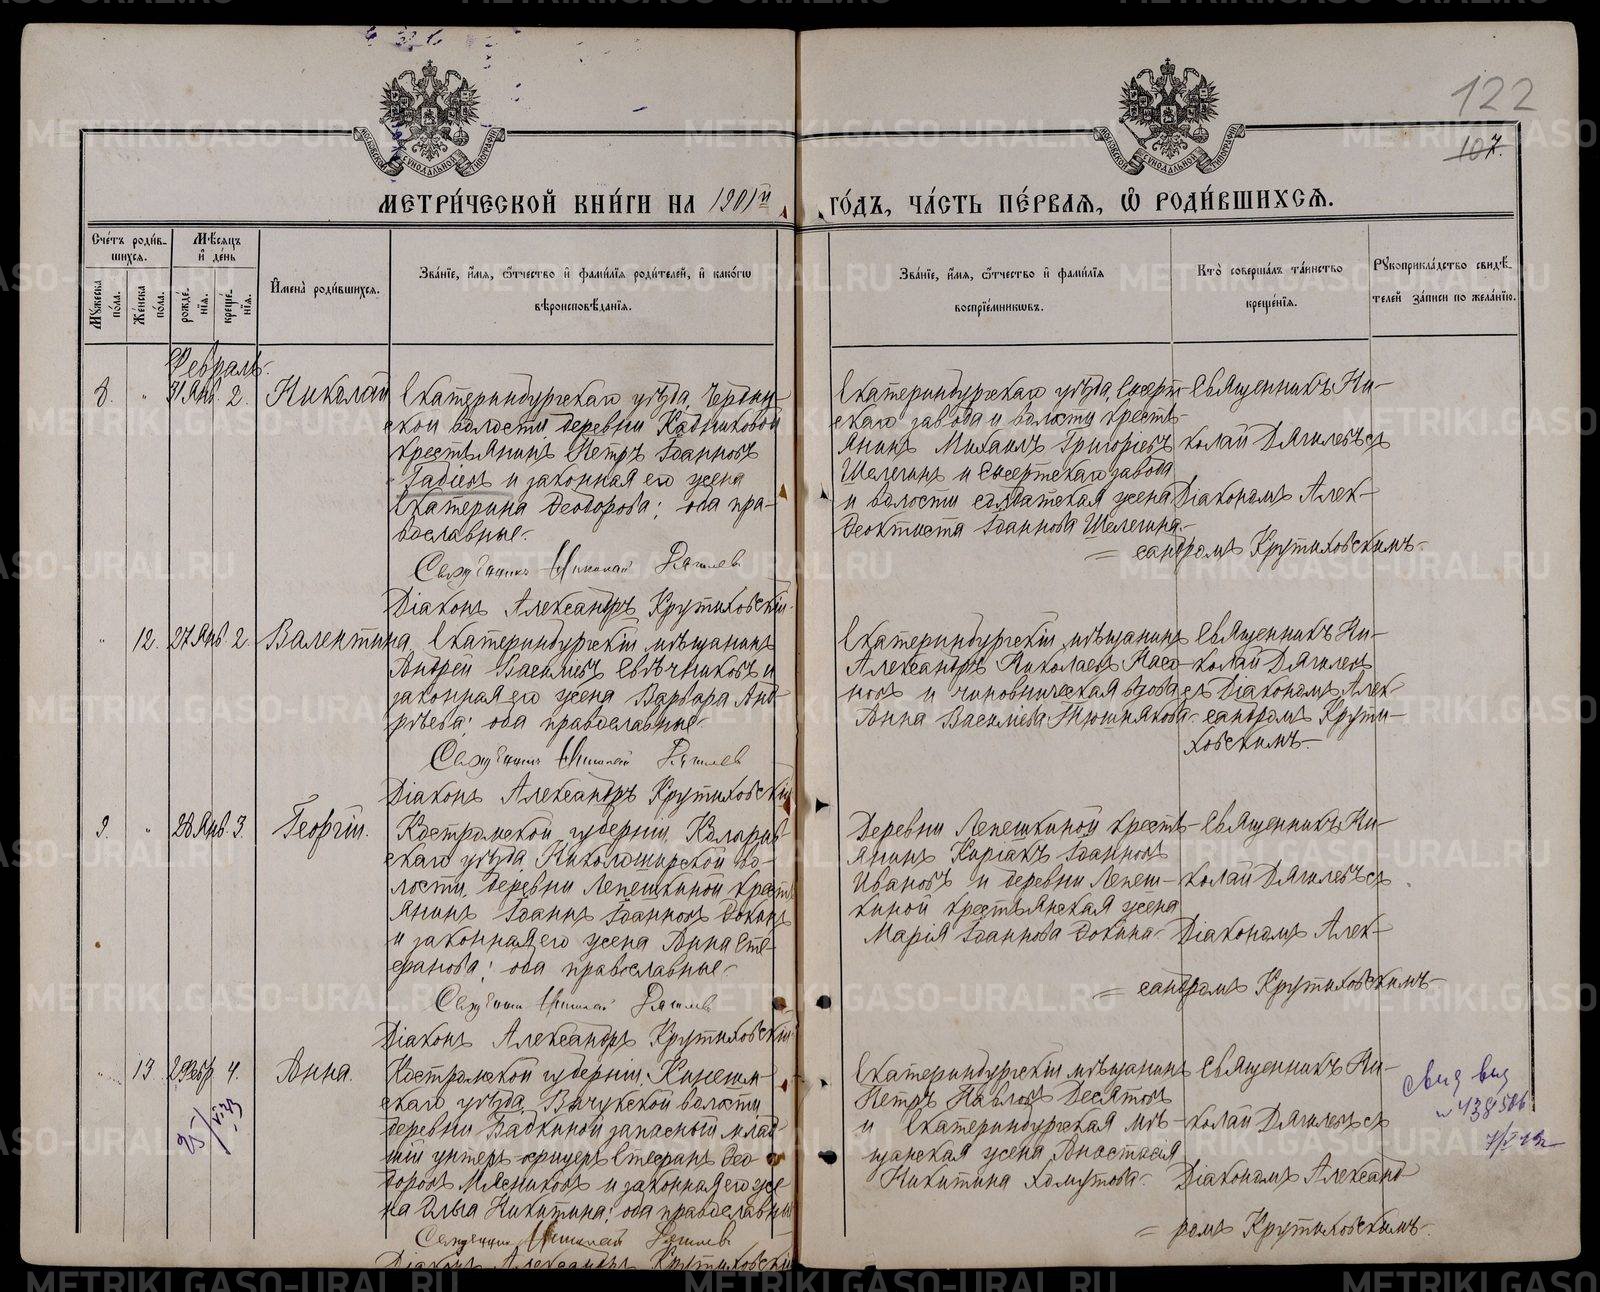 122
107.
МОСКОВСКОЙ СѴНОДАЛЬНОЙ ТИПОГРАФІИ
МОСКОВСКОЙ СѴНОДАЛЬНОЙ ТИПОГРАФІИ
МЕТРИ́ЧЕСКОЙ КНИ́ГИ НА 1901й ГО́ДЪ, ЧА́СТЬ ПЕ́РВАЯ, Ѡ РОДИ́ВШИХСЯ.
Сче́тъ роди́в-
шихся.
Мѣ́сяцъ
и де́нь
Му́жеска
по́ла.
Же́нска
по́ла.
рожде́-
нїя.
креще́-
нїя.
Имена̀ роди́вшихся.
Зва́нїе, и́мя, о́тчество и фами́лїя роди́телей, и како́гѡ
вѣроисповѣ́данїя.
Зва́нїе, и́мя, о́тчество и фами́лїя
воспрїе́мникѡвъ.
Кто̀ соверша́лъ та́инство
креще́нїя.
Рукоприкла́дство свидѣ́-
телей за́писи по жела́нїю.
Февраль.
8. " 31 Янв. 2. Николай
Екатеринбургскаго уѣзда,
ской волости деревни Кадниковой
крестьянинъ Петръ Іоанновъ
и законная его жена
Екатерина Ѳеодорова; оба пра-
вославные.
Священникъ Николай Дягилевъ
Діаконъ Александръ Крутиховскій.
Екатеринбургскаго уѣзда, Сысерт-
скаго завода и волости кресть-
янинъ Михаилъ Григорьевъ
Шелегинъ и Сысертскаго завода
и волости солдатская жена
Ѳеоктиста Іоаннова Шелегина.
Священникъ Ни-
колай Дягилевъ съ
Діакономъ Алек-
сандромъ Крутиховскимъ.
" 12. 27 Янв 2. Валентина
Екатеринбургскій мѣщанинъ
Андрей Васильевъ Свѣчниковъ и
законная его жена Варвара Анд-
реева; оба православные.
Священникъ Николай Дягилевъ
Діаконъ Александръ Крутиховскій
Екатеринбургскій мѣщанинъ
Александръ Николаевъ Насо-
новъ и чиновническая вдова
Анна Васильева Тюшнякова.
Священникъ Ни-
колай Дягилевъ
съ Діакономъ Алек-
сандромъ Крути-
ховскимъ.
9. " 28 Янв 3. Георгій.
Костромской губерніи, Кологрив-
скаго уѣзда, во-
лости, деревни Лепешкиной кресть-
янинъ Іоаннъ Іоанновъ
и законная его жена Анна Сте-
фанова; оба православные.
Священникъ Николай Дягилевъ
Діаконъ Александръ Крутиховскій
Деревни Лепешкиной кресть-
янинъ Киріакъ Іоанновъ
Ивановъ и деревни Лепеш-
киной крестьянская жена
Марія Іоаннова
Священникъ Ни-
колай Дягилевъ съ
Діакономъ Алек-
сандромъ Крутиховскимъ.
" 13 2 Февр 4. Анна.
Костромской губерніи, Кинешем-
скаго уѣзда, Вичугской волости,
деревни запасный млад-
шій унтеръ-офицеръ Стефанъ Ѳео-
доровъ Мясниковъ и законная его же-
на Ольга Никитина; оба православные
Священникъ Николай Дягилевъ
Діаконъ Александръ Крутиховскій
Екатеринбургскій мѣщанинъ
Петръ Павловъ Десятовъ
и Екатеринбургская мѣ-
щанская жена Анастасія
Никитина Хомутова.
Священникъ Ни-
колай Дягилевъ съ
Діакономъ Александ-
ромъ Крутиховскимъ.
METRIKI.GASO-URAL.RU